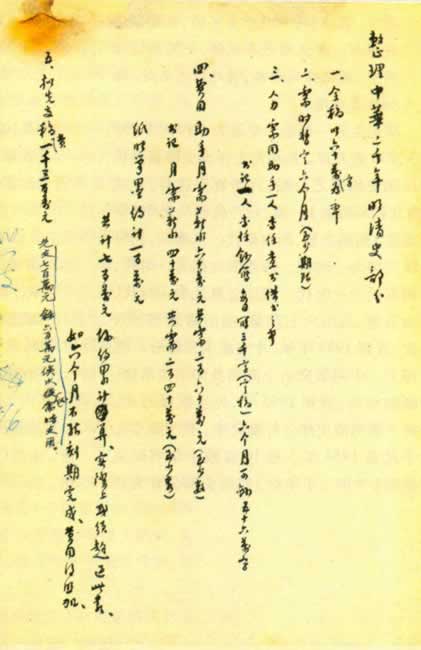 整理中華二千年明清史部分
一、全稿以六十萬字為率
二、需時暫定六个月(至少期限)
三、人力 需用助手一人 專任查書借書之事
書記一人 專任鈔寫 每日三千字 六个月可鈔五十六萬字
四、費用 助手月需薪水六十萬元 共需三百六十萬元(至少數)
書記月需薪水四十萬元 共需二百四十萬元(至少數)
紙張筆墨約計一百萬元
共計七百萬元 係約略計算 實際上或須超过此數、
如六个月不能到期完成、費用須加、
五、擬先支稿費一千三百萬元 先支七百萬元 餘六百萬元俟需時支用